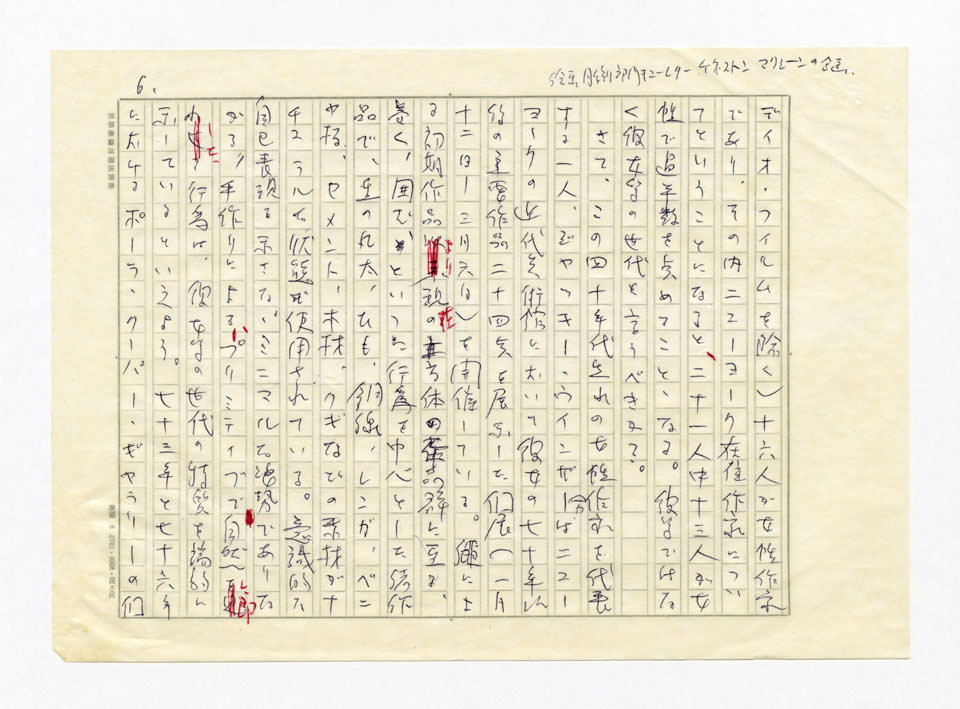 絵画、彫刻部門キューレター キネストン マクレーンの企画。
6.
ディオ・フイルムを除く)十六人が女性作家
であり、その内ニューヨーク在住作家につい
てということになると、二十一人中十三人が女
性で過半数を占めてこと、なる。彼等ではな
く彼女等の世代と言うべきか?。
さて、この四十年代生れの女性作家を代表
する一人、ジャッキー・ウインザーは ニュー
ヨークの近代美術館に於いて彼女の七十年以
後の主要作品二十四点を展示した個展(一月
十二日ー三月六日)を開催している。縄によ
る初期作品より、現在の立方体の作品群に至る、
巻く、囲むといった行為を中心とした諸作
品で、生の丸太、ひも、銅線、レンガ、ベニ
ヤ板、セメント、木材、クギなどの素材がナ
チュラルな状態で使用されている。意識的な
自己表現を示さないミニマルな姿勢であり な
がら、手作りによるプリミティブで自然
行為は、彼女等の世代の特質を端的に
示しているといえよう。七十三年と七十六年
に於けるポーラ・クーパー・ギャラリーの個